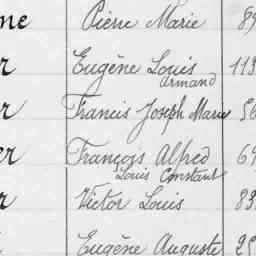 ne Pierre Marie 89
r Eugène Louis 113
Armand
r Francis Joseph Marie 56
er François Alfred 69
Louis Constant
r Victor Louis 83
Eugène Auguste 25